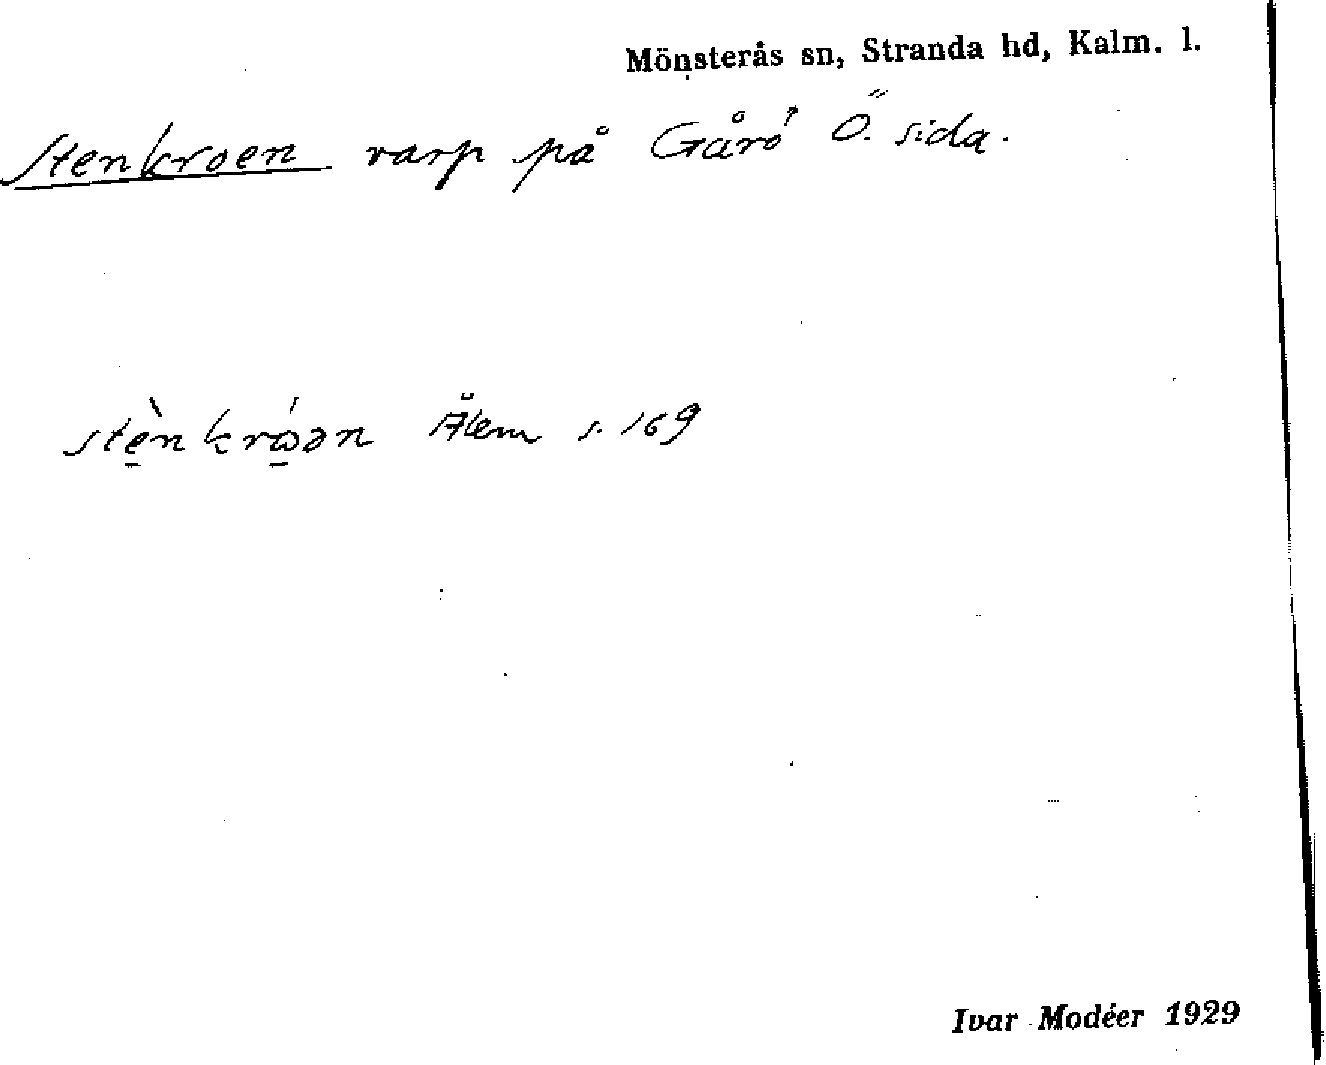 Mönsterås sn, Stranda hd, Kalm. l.
Stenkroen varp på Gårö Ö. sida.
stè̠nkrώ̠ən Ålem s. 169
Ivar Modéer 1929